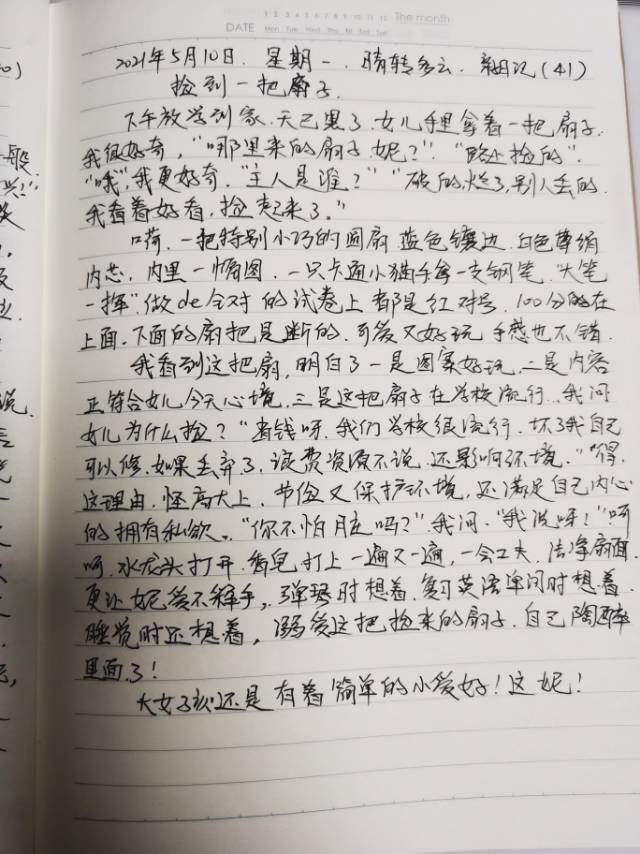 1 2 3 4 5 6 7 8 9 10 11 12 The month
DATE Mon Tue Wed Thu Fri Sat Sun
2021年5月10日. 星期一. 晴转多云. 亲子日记(41)
捡到一把扇子.
下午放学到家.天已黑了.女儿手里拿着一把扇子.
我很好奇,"哪里来的扇子.妮?" "路上捡的".
"哦".我更好奇."主人是谁?" "破的.烂了.别人丢的.
我看着好看.捡起来了."
呵.一把特别小巧的圆扇.蓝色镶边.白色薄绢
内芯.内里一幅图.一只卡通小猫手拿一支钢笔."大笔
一挥".做de全对 的试卷上都是红对号.100分的在
上面.下面的扇把是断的.可爱又好玩.手感也不错.
我看到这把扇,明白了一是图案好玩.二是内容
正符合女儿今天心境.三是这把扇子在学校流行.我问
女儿为什么捡?"省钱呀.我们学校很流行.坏了我自己
可以修.如果丢弃了.浪费资源不说.还影响环境.""得.
这理由.怪高大上.节俭又保护环境.还满足自己内心
的拥有私欲."你不怕脏吗?"我问."我洗呀!"呵
呵.水龙头打开.香皂打上一遍又一遍,一会工夫.洁净扇面.
更让妮爱不释手.弹琴时想着.复习英语单词时想着.
睡觉时还想着,溺爱这把捡来的扇子.自己陶醉
里面了!
大女孩还是有着简单的小爱好!这妮!